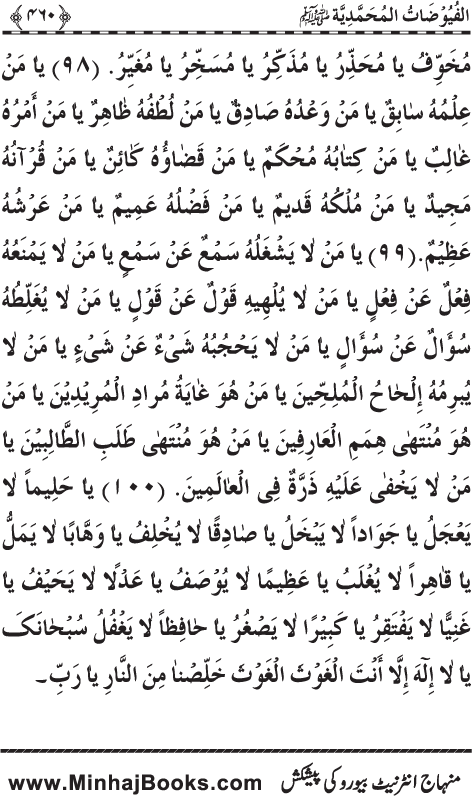 الفُيُوْضَاتُ المُحَمَّدِيَّة ﷺ ﴿۴۶۰﴾
مُخَوِّفُ يا مُحَذِّرُ يا مُذَكِّرُ يا مُسَخِّرُ يا مُغَيِّرُ. (۹۸) يا مَنْ
عِلْمُهُ سابِقٌ يا مَنْ وَعْدُهُ صادِقٌ يا مَنْ لُطْفُهُ ظاهِرٌ يا مَنْ أَمْرُهُ
غالِبٌ يا مَنْ كِتابُهُ مُحْكَمٌ يا مَنْ قَضاؤُهُ كائِنٌ يا مَنْ قُرْآنُهُ
مَجِيدٌ يا مَنْ مُلْكُهُ قَدِيمٌ يا مَنْ فَضْلُهُ عَمِيمٌ يا مَنْ عَرْشُهُ
عَظِيْمٌ.(۹۹) يا مَنْ لا يَشْغَلُهُ سَمْعٌ عَنْ سَمْعٍ يا مَنْ لا يَمْنَعُهُ
فِعْلٌ عَنْ فِعْلٍ يا مَنْ لا يُلْهِيهِ قَوْلٌ عَنْ قَوْلٍ يا مَنْ لا يُغَلِّطُهُ
سُؤالٌ عَنْ سُؤالٍ يا مَنْ لا يَحْجُبُهُ شَىْءٌ عَنْ شَىْءٍ يا مَنْ لا
يُبرِمُهُ إلْحاحُ الْمُلِحِّينَ يا مَنْ هُوَ غايَةُ مُرادِ الْمُرِيْدِيْنَ يا مَنْ
هُوَ مُنْتَهٰى هِمَمِ الْعارِفِينَ يا مَنْ هُوَ مُنْتَهٰى طَلَبِ الطَّالِبِيْنَ يا
مَنْ لا يَخْفٰى عَلَيْهِ ذَرَّةٌ فِى الْعالَمِينَ. (۱۰۰) يا حَلِيماً لا
يَعْجَلُ يا جَوَاداً لا يَبْخَلُ يا صادِقًا لا يُخْلِفُ يا وَهَّابًا لا يَمَلُّ
يا قاهِراً لا يُغْلَبُ يا عَظِيمًا لا يُوْصَفُ يا عَدْلًا لا يَحَيْفُ يا
غَنِيًّا لا يَفْتَقِرُ يا كَبِيْرًا لا يَصْغُرُ يا حافِظاً لا يَغْفُلُ سُبْحانَكَ
يا لا إلٰهَ إلَّا أَنْتَ الْغَوْثَ الْغَوْثَ خَلِّصْنا مِنَ النَّارِ يا رَبِّ۔
منہاج انٹرنیٹ بیورو کی پیشکش www.MinhajBooks.com